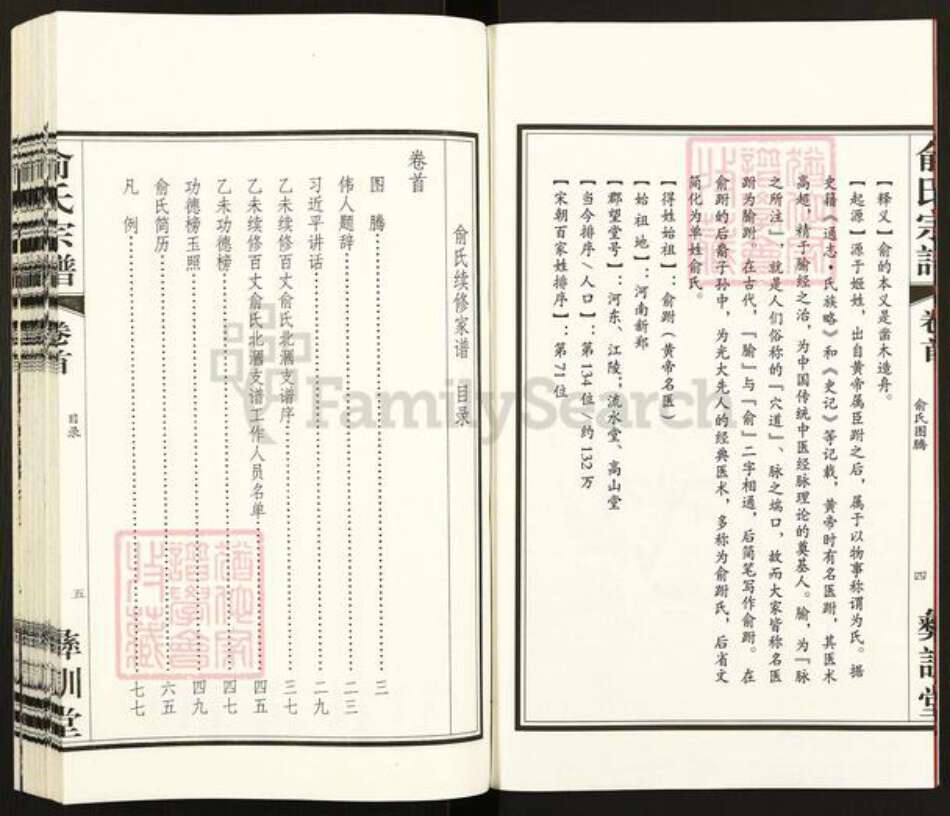 俞氏宗谱
卷首
俞氏图腾
四
彝训堂
【释义】俞的本义是凿木造舟。
【起源】源于姬姓，出自黄帝属臣跗之后，属于以物事称谓为氏。据
史籍《通志·氏族略》和《史记》等记载，黄帝时有名医跗，其医术
高超，精于腧经之治，为中国传统中医经脉理论的奠基人。腧，为「脉
之所注」，就是人们俗称的「穴道」、脉之端口，故而大家皆称名医
跗为腧跗，在古代，「腧」与「俞」二字相通，后简笔写作俞跗。在
俞跗的后裔子孙中，为光大先人的经典医术，多称为俞跗氏，后省文
简化为单姓俞氏。
【得姓始祖】：俞跗（黄帝名医）
【始祖地】：河南新郑
【郡望堂号】：河东、江陵；流水堂、高山堂
【当今排序/人口】：第134位/约132万
【宋朝百家姓排序】：第71位
俞氏续修家谱 目录
卷首
图腾 三
伟人题辞 二三
习近平讲话 二九
乙未续修百丈俞氏北溷支谱序 三七
乙未续修百丈俞氏北溷支谱工作人员名单 四五
乙未功德榜 四七
功德榜玉照 四九
俞氏简历 六五
凡例 七七
俞氏宗谱
卷首
目录
五
彝训堂
FamilySearch